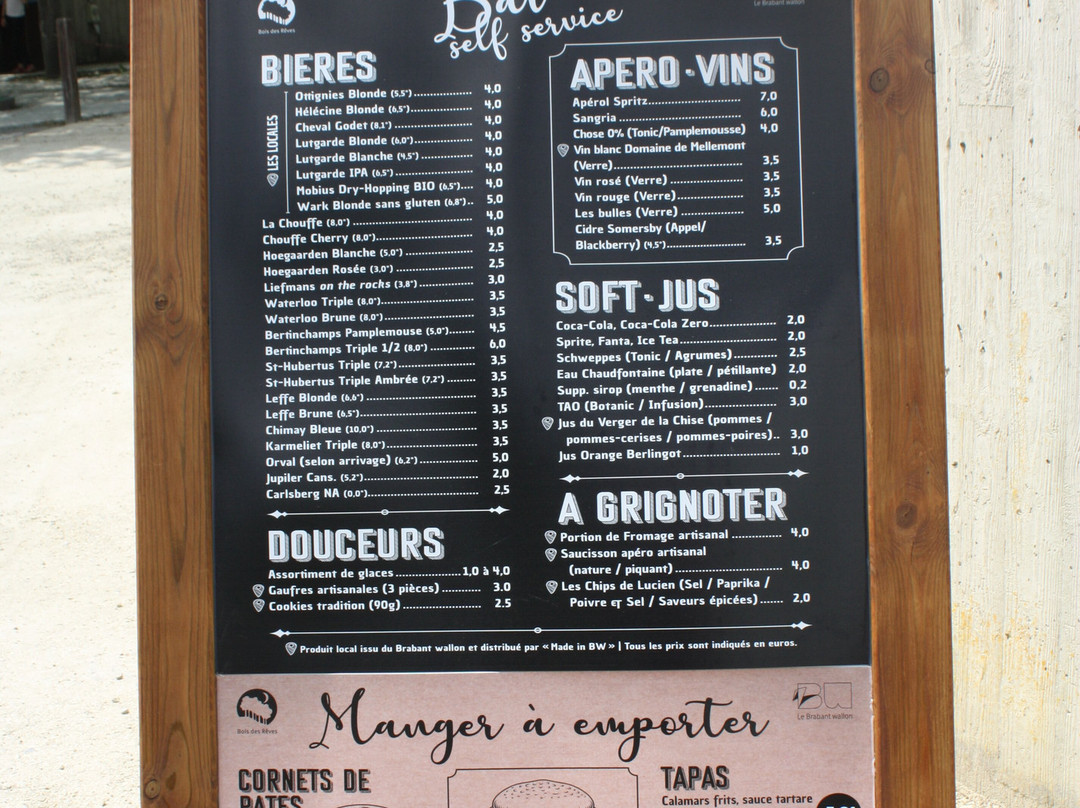 Bois des Rêves
Bar
self service
Le Brabant wallon
BIERES
LES LOCALES
Ottignies Blonde (5,5°) 4,0
Hélécine Blonde (6,5°) 4,0
Cheval Godet (8,1°) 4,0
Lutgarde Blonde (6,0°) 4,0
Lutgarde Blanche (4,5°) 4,0
Lutgarde IPA (6,5°) 4,0
Mobius Dry-Hopping BIO (6,5°) 4,0
Wark Blonde sans gluten (6,8°) 5,0
La Chouffe (8,0°) 4,0
Chouffe Cherry (8,0°) 4,0
Hoegaarden Blanche (5,0°) 2,5
Hoegaarden Rosée (3,0°) 2,5
Liefmans on the rocks (3,8°) 3,0
Waterloo Triple (8,0°) 3,5
Waterloo Brune (8,0°) 3,5
Bertinchamps Pamplemouse (5,0°) 4,5
Bertinchamps Triple 1/2 (8,0°) 6,0
St-Hubertus Triple (7,2°) 3,5
St-Hubertus Triple Ambrée (7,2°) 3,5
Leffe Blonde (6,6°) 3,5
Leffe Brune (6,5°) 3,5
Chimay Bleue (10,0°) 3,5
Karmeliet Triple (8,0°) 3,5
Orval (selon arrivage) (6,2°) 5,0
Jupiler Cans. (5,2°) 2,0
Carlsberg NA (0,0°) 2,5
DOUCEURS
Assortiment de glaces 1,0 à 4,0
Gaufres artisanales (3 pièces) 3.0
Cookies tradition (90g) 2.5
APERO - VINS
Apérol Spritz 7,0
Sangria 6,0
Chose 0% (Tonic/Pamplemousse) 4,0
Vin blanc Domaine de Mellemont
(Verre) 3,5
Vin rosé (Verre) 3,5
Vin rouge (Verre) 3,5
Les bulles (Verre) 5,0
Cidre Somersby (Appel/
Blackberry) (4,5°) 3,5
SOFT - JUS
Coca-Cola, Coca-Cola Zero 2,0
Sprite, Fanta, Ice Tea 2,0
Schweppes (Tonic / Agrumes) 2,5
Eau Chaudfontaine (plate / pétillante) 2,0
Supp. sirop (menthe / grenadine) 0,2
TAO (Botanic / Infusion) 3,0
Jus du Verger de la Chise (pommes /
pommes-cerises / pommes-poires) 3,0
Jus Orange Berlingot 1,0
A GRIGNOTER
Portion de Fromage artisanal 4,0
Saucisson apéro artisanal
(nature / piquant) 4,0
Les Chips de Lucien (Sel / Paprika /
Poivre et Sel / Saveurs épicées) 2,0
Produit local issu du Brabant wallon et distribué par « Made in BW » | Tous les prix sont indiqués en euros.
Bois des Rêves
Manger à emporter
BW
Le Brabant wallon
CORNETS DE
PATES
TAPAS
Calamars frits, sauce tartare